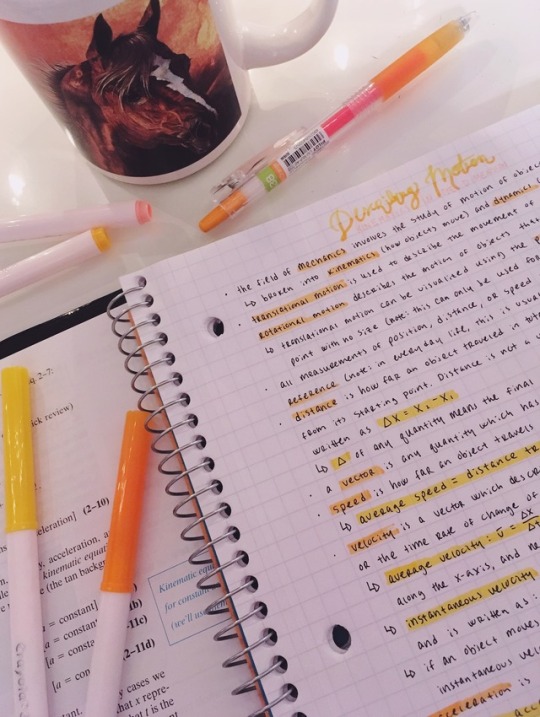 Describing Motion
• the field of mechanics involves the study of motion of objec
↳ broken into kinematics (how objects move) and dynamics
• translational motion is used to describe the movement of
• rotational motion describes the motion of objects tha
↳ translational motion can be visualized using the
point with no size (note: this can only be used for
• all measurements of position, distance, or speed
reference (note: in everyday life, this is usua
• distance is how far an object traveled in tota
from its starting point. Distance is not a v
written as Δx = x₂ - x₁
↳ Δ of any quantity means the final
• a vector is any quantity which has
• speed is how far an object travels
↳ average speed = distance tr
• velocity is a vector which descri
or the time rate of change of
↳ average velocity: v̄ = Δx
Δt
along the x-axis, and
↳ instantaneous velocity
and is written as:
↳ if an object moves
instantaneous velo
acceleration is
2-7:
ick review)
eleration] (2–10)
y, acceleration, a
kinematic equat
e (the tan backg
= constant]
[a = constant] b)
[a = constant] 11c)
[a = constant] (2–11d)
y cases we
that x repre-
that t is the
tant.
Kinematic equ
for constan
(we'll us
Crayola